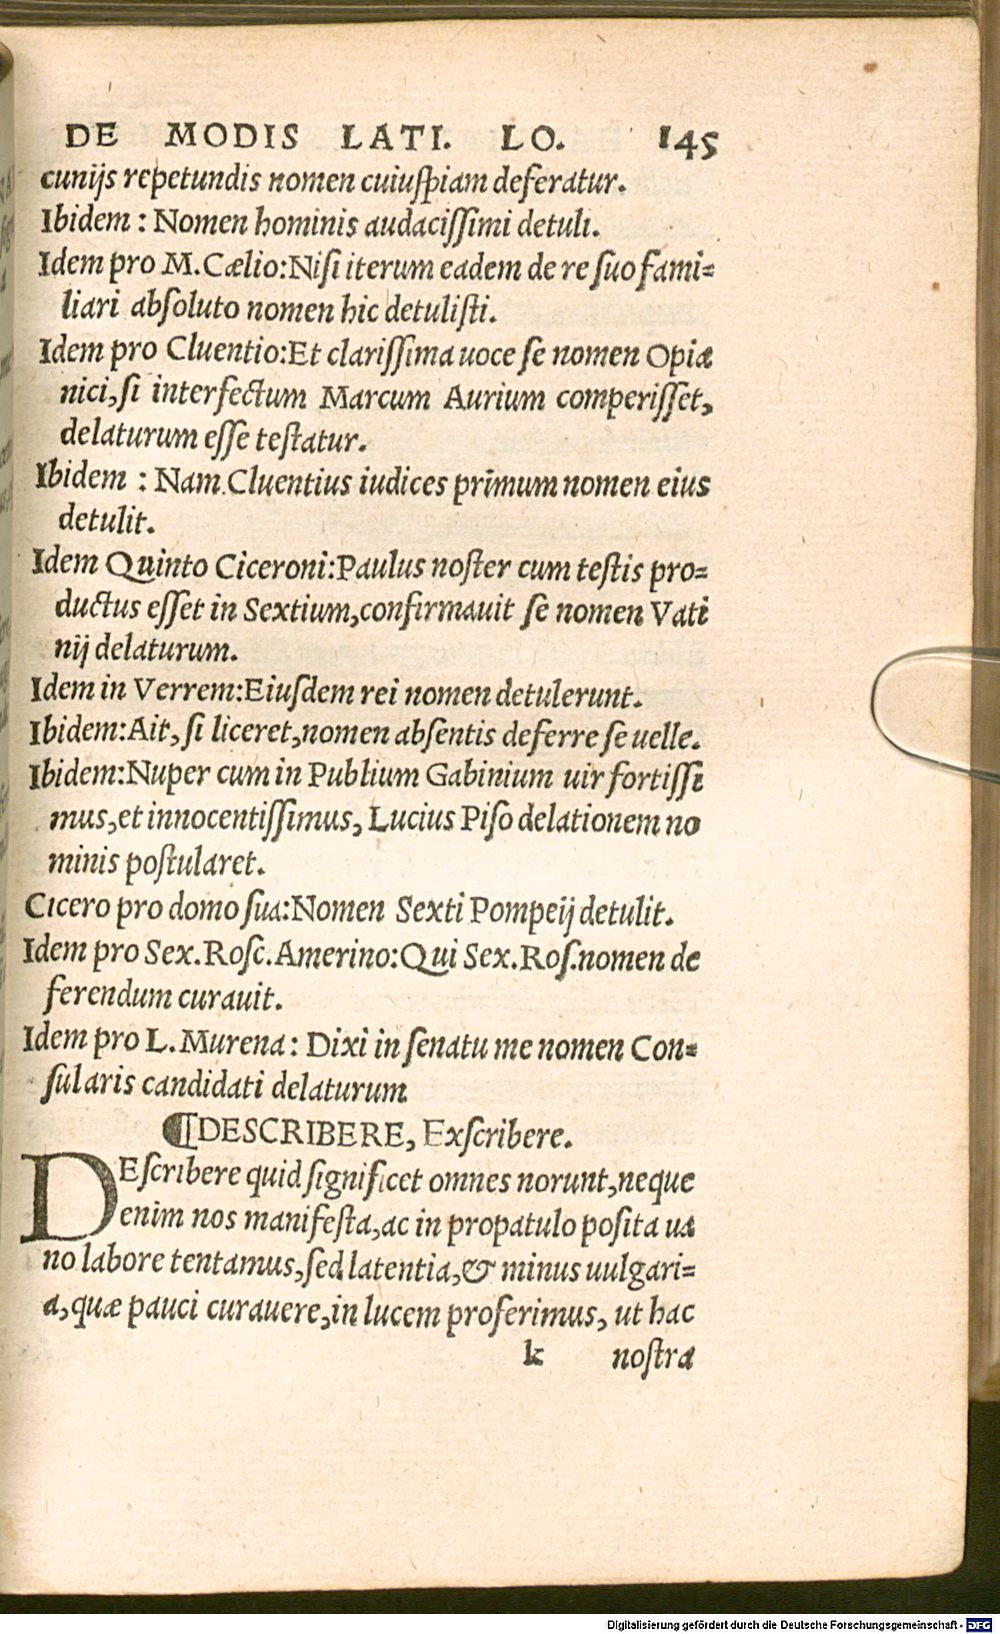 DE MODIS LATI. LO. 145
cunijs repetundis nomen cuiuſpiam deferatur.
Ibidem : Nomen hominis audaciſſimi detuli.
Idem pro M. Cælio:Niſi iterum eadem de re ſuo fami-
liari abſoluto nomen hic detuliſti.
Idem pro Cluentio:Et clariſſima uoce ſe nomen Opia
nici,ſi interfectum Marcum Aurium comperiſſet,
delaturum eſſe teſtatur.
Ibidem : Nam Cluentius iudices primum nomen eius
detulit.
Idem Quinto Ciceroni:Paulus noſter cum teſtis pro-
ductus eſſet in Sextium,confirmauit ſe nomen Vati
nij delaturum.
Idem in Verrem:Eiuſdem rei nomen detulerunt.
Ibidem:Ait,ſi liceret,nomen abſentis deferre ſe uelle.
Ibidem:Nuper cum in Publium Gabinium uir fortiſſi
mus,et innocentiſſimus, Lucius Piſo delationem no
minis poſtularet.
Cicero pro domo ſua:Nomen Sexti Pompeij detulit.
Idem pro Sex.Roſc.Amerino:Qui Sex.Roſ.nomen de
ferendum curauit.
Idem pro L.Murena: Dixi in ſenatu me nomen Con-
ſularis candidati delaturum
¶DESCRIBERE, Exſcribere.
DEſcribere quid ſignificet omnes norunt,neque
enim nos manifeſta,ac in propatulo poſita ua
no labore tentamus,ſed latentia,& minus uulgari-
a,quæ pauci curauere,in lucem proferimus, ut hac
k noſtra
Digitalisierung gefördert durch die Deutsche Forschungsgemeinschaft - DFG